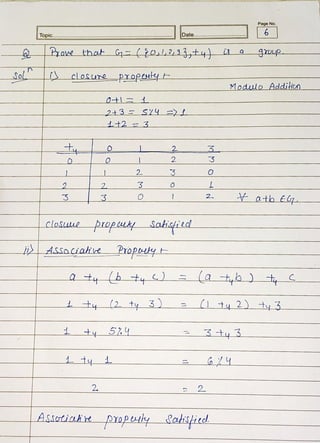 Page No.
6
Topic
Date
Q Prove that G = ({0,1,2,3},+4) is a group.
Solⁿ i) closure property :-
Modulo Addition
0+1 = 1
2+3 = 5%4 => 1
1+2 = 3
+4 0 1 2 3
0 0 1 2 3
1 1 2 3 0
2 2 3 0 1
3 3 0 1 2 ∀ a+b ∈ G.
closure property satisfied
ii) Associative Property :-
a +4 (b +4 c) = (a +4 b) +4 c
1 +4 (2 +4 3) = (1 +4 2) +4 3
1 +4 5%4 = 3 +4 3
1 +4 1 = 6%4
2 = 2
Associative property satisfied